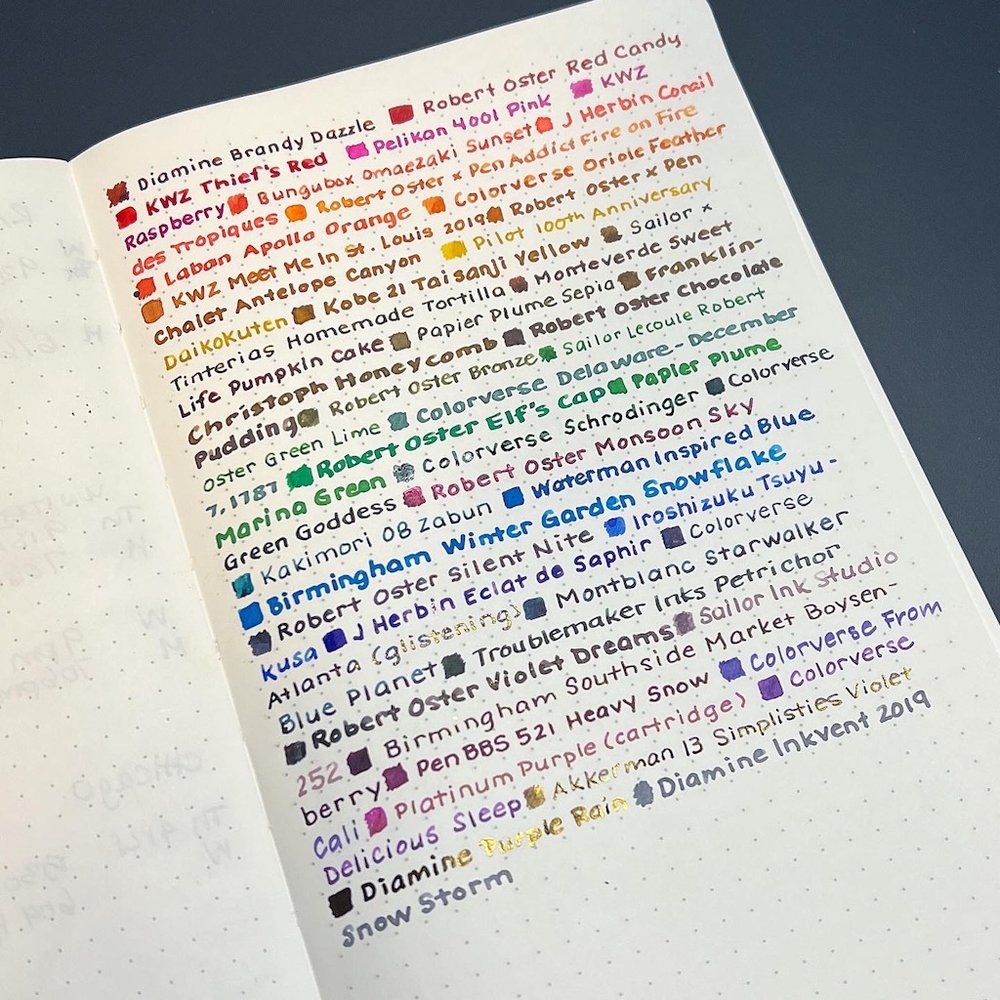 Diamine Brandy Dazzle Robert Oster Red Candy
KWZ Thief's Red Pelikan 4001 Pink KWZ
Raspberry Bungubox Omaezaki Sunset J Herbin Corail
des Tropiques Robert Oster x Pen Addict Fire on Fire
Laban Apollo Orange Colorverse Oriole Feather
KWZ Meet Me In St. Louis 2019 Robert Oster x Pen
Chalet Antelope Canyon Pilot 100th Anniversary
Daikokuten Kobe 21 Taisanji Yellow Sailor x
Tinterias Homemade Tortilla Monteverde Sweet
Life Pumpkin Cake Papier Plume Sepia Franklin-
Christoph Honeycomb Robert Oster Chocolate
Pudding Robert Oster Bronze Sailor Lecoule Robert
Oster Green Lime Colorverse Delaware - December
7, 1787 Robert Oster Elf's Cap Papier Plume
Marina Green Colorverse Schrodinger Colorverse
Green Goddess Robert Oster Monsoon Sky
Kakimori 08 Zabun Waterman Inspired Blue
Birmingham Winter Garden Snowflake
Robert Oster Silent Nite Iroshizuku Tsuyu-
kusa J Herbin Eclat de Saphir Colorverse
Atlanta (glistening) Montblanc Starwalker
Blue Planet Troublemaker Inks Petrichor
Robert Oster Violet Dreams Sailor Ink Studio
252 Birmingham Southside Market Boysen-
berry PenBBS 521 Heavy Snow Colorverse From
Cali Platinum Purple (cartridge) Colorverse
Delicious Sleep Akkerman 13 Simplisties Violet
Diamine Purple Rain Diamine Inkvent 2019
Snow Storm